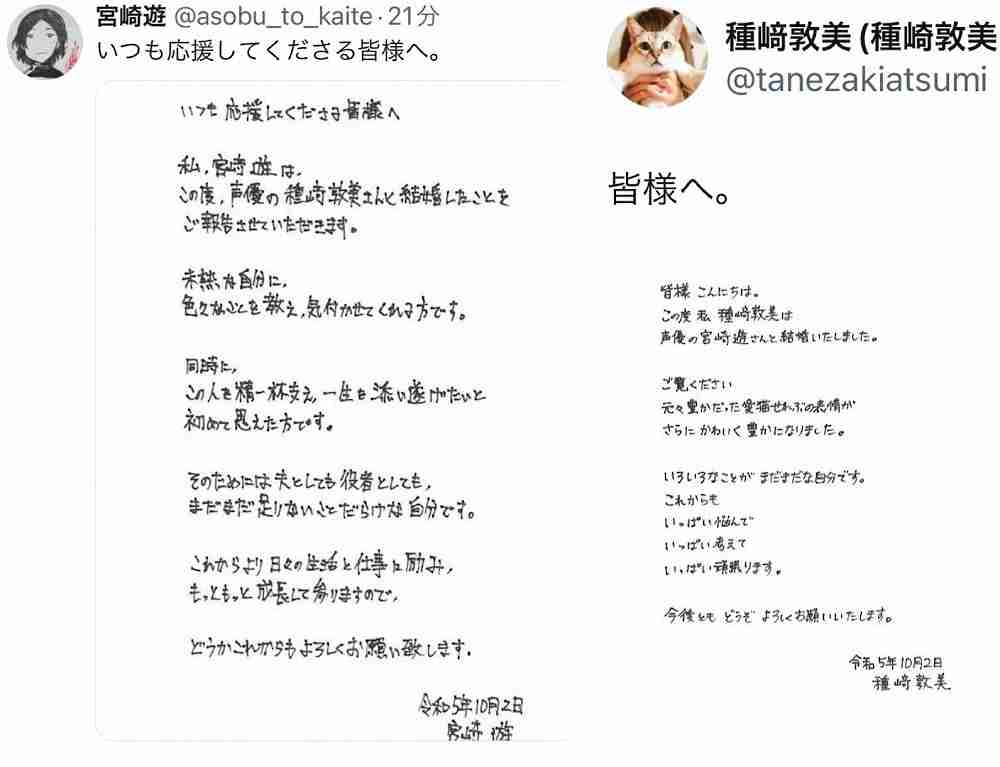 宮崎遊 @asobu_to_kaite · 21分
いつも応援してくださる皆様へ。
いつも応援してくださる皆様へ
私、宮崎遊は、
この度、声優の種﨑敦美さんと結婚したことを
ご報告させていただきます。
未熟な自分に、
色々なことを教え、気付かせてくれる方です。
同時に、
この人を精一杯支え、一生を添い遂げたいと
初めて思えた方です。
そのためには夫としても役者としても、
まだまだ足りないことだらけな自分です。
これからより日々の生活と仕事に励み、
もっともっと成長して参りますので、
どうかこれからもよろしくお願い致します。
令和5年10月2日
宮崎 遊
種﨑敦美 (種崎敦美
@tanezakiatsumi
皆様へ。
皆様 こんにちは。
この度 私 種﨑敦美は
声優の宮崎遊さんと結婚いたしました。
ご覧ください
元々豊かだった愛猫せれぶの表情が
さらに かわいく 豊かになりました。
いろいろなことが まだまだな自分です。
これからも
いっぱい悩んで
いっぱい考えて
いっぱい頑張ります。
今後とも どうぞ よろしくお願いいたします。
令和5年10月2日
種﨑敦美